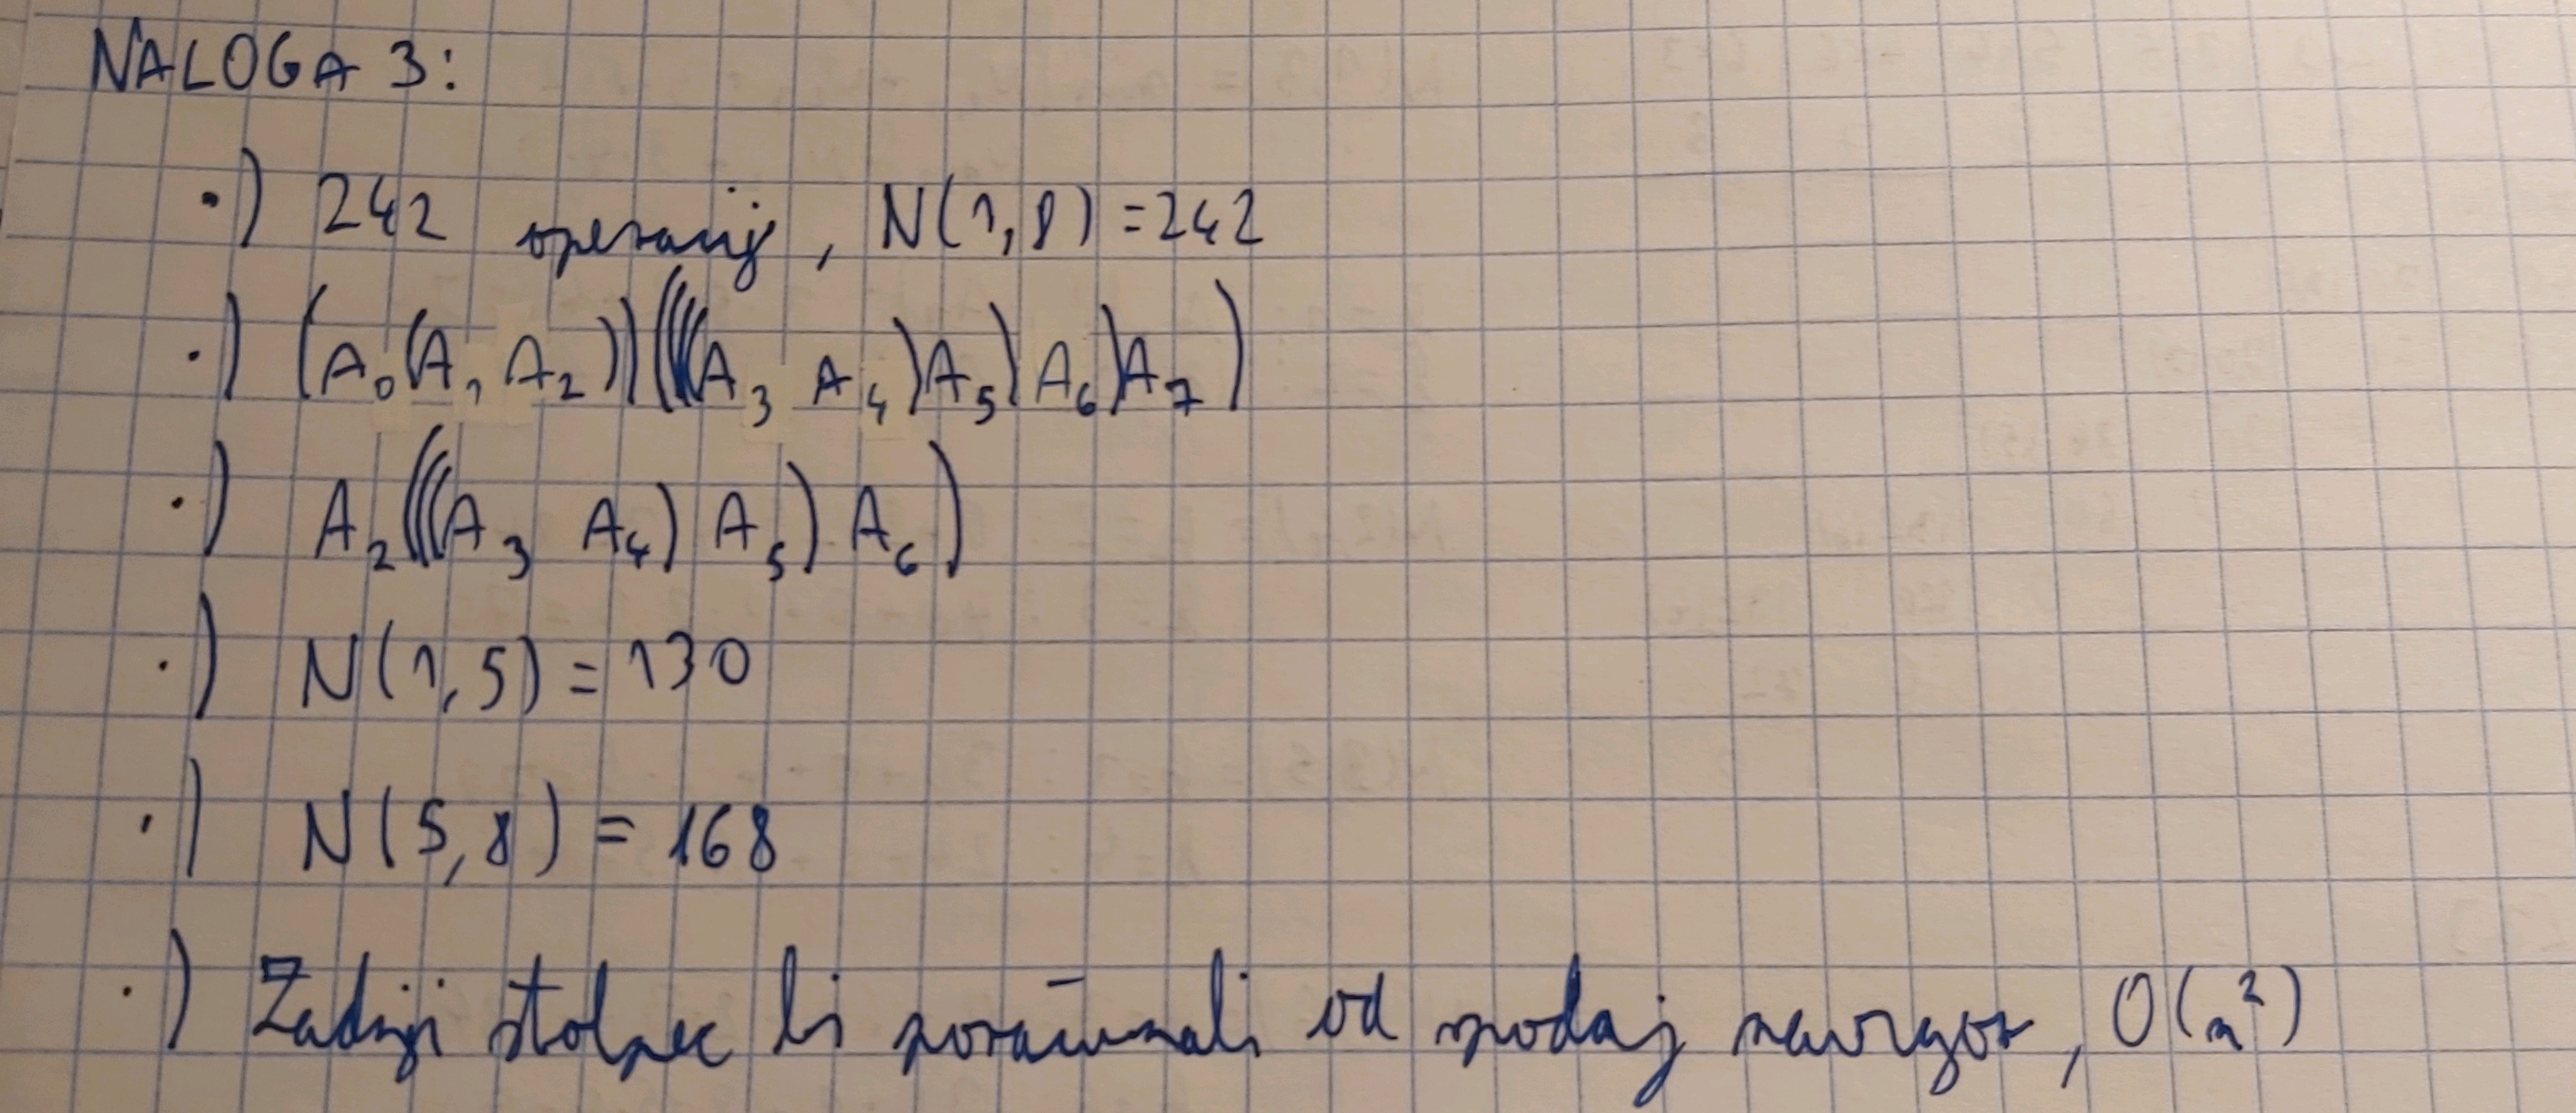 NALOGA 3:
·) 242 operacij, N(1,8) = 242
·) (A₀(A₁ A₂))((((A₃ A₄)A₅)A₆)A₇)
·) A₂(((A₃ A₄) A₅) A₆)
·) N(1,5) = 130
·) N(5,8) = 168
·) Zadnji stolpec bi poračunali od spodaj navzgor, O(n²)